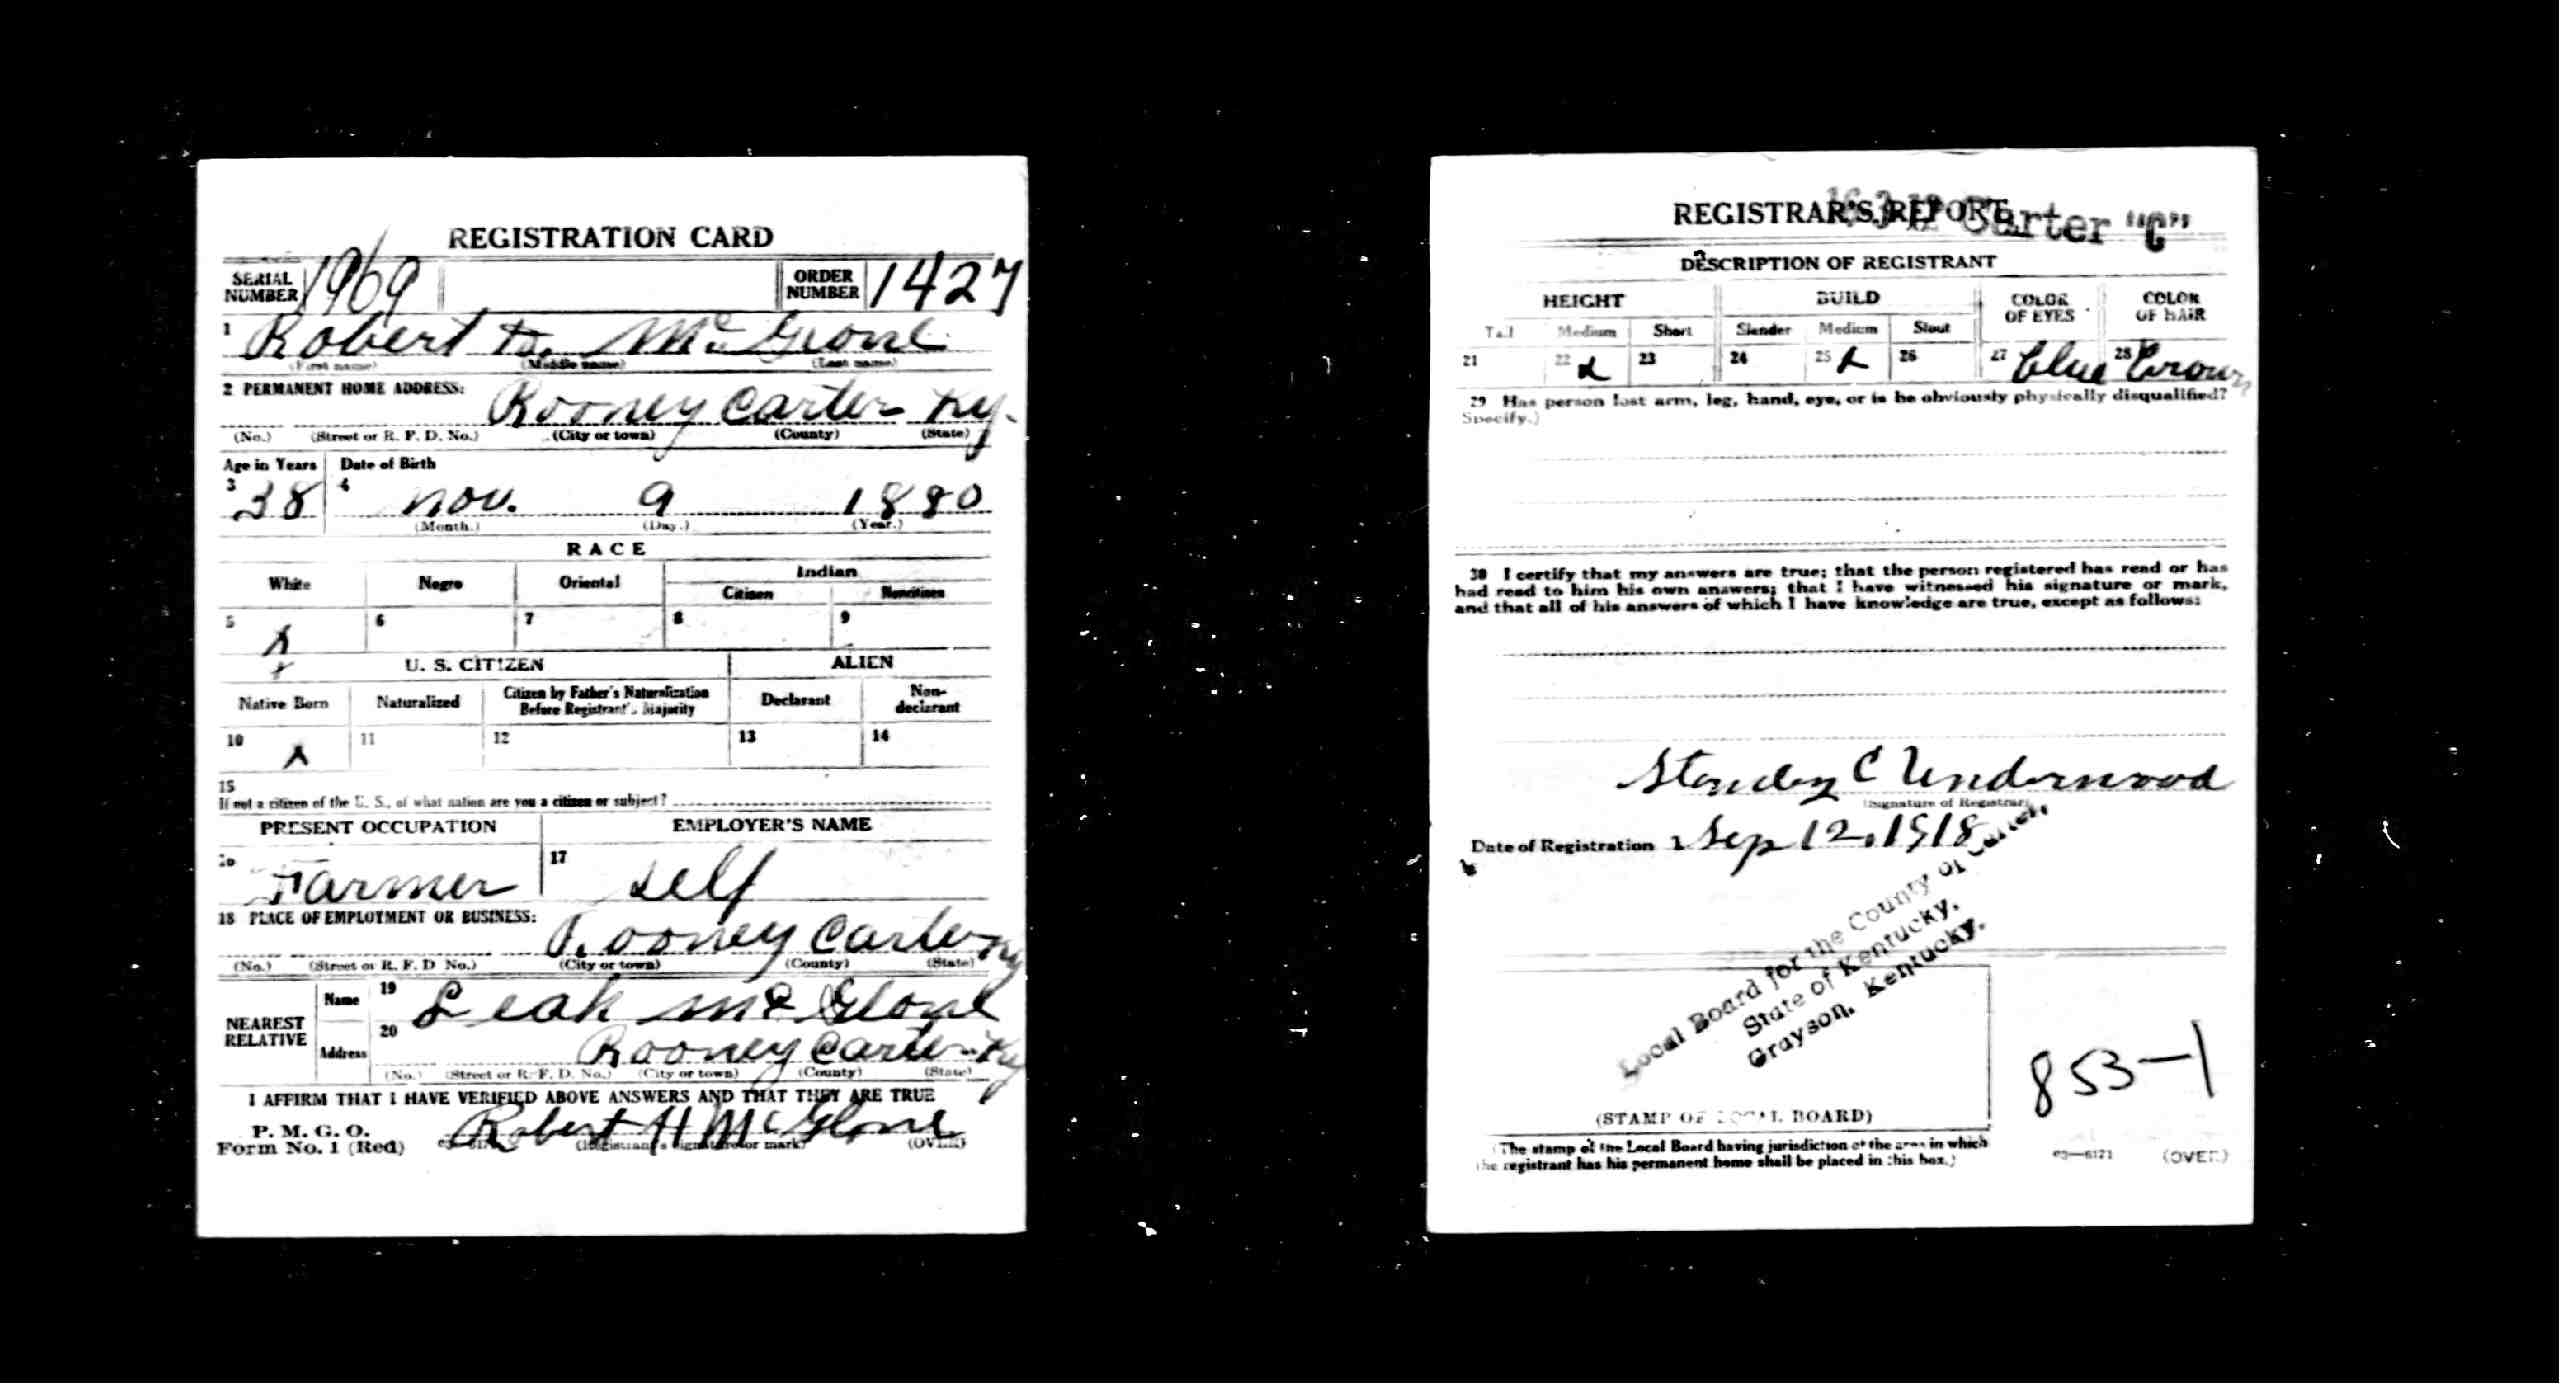 REGISTRATION CARD
SERIAL NUMBER 1969 ORDER NUMBER 1427
1 Robert H. Mc Glone
(First name) (Middle name) (Last name)
2 PERMANENT HOME ADDRESS:
Rooney Carter Ky.
(No.) (Street or R. F. D. No.) (City or town) (County) (State)
Age in Years Date of Birth
3 38 4 Nov. 9 1880
(Month.) (Day.) (Year.)
RACE
White Negro Oriental Indian
Citizen Noncitizen
5 X 6 7 8 9
U. S. CITIZEN ALIEN
Native Born Naturalized Citizen by Father's Naturalization Before Registrant's Majority Declarant Non-declarant
10 X 11 12 13 14
15
If not a citizen of the U. S., of what nation are you a citizen or subject?
PRESENT OCCUPATION EMPLOYER'S NAME
16 Farmer 17 self
18 PLACE OF EMPLOYMENT OR BUSINESS:
Rooney Carter Ky
(No.) (Street or R. F. D. No.) (City or town) (County) (State)
NEAREST RELATIVE Name 19 Leah Mc Glone
Address 20 Rooney Carter Ky
(No.) (Street or R. F. D. No.) (City or town) (County) (State)
I AFFIRM THAT I HAVE VERIFIED ABOVE ANSWERS AND THAT THEY ARE TRUE
P. M. G. O.
Form No. 1 (Red) Robert H McGlone
(Registrant's signature or mark) (OVER)
REGISTRAR'S REPORT
Carter "C"
DESCRIPTION OF REGISTRANT
HEIGHT BUILD COLOR OF EYES COLOR OF HAIR
Tall Medium Short Slender Medium Stout
21 22 x 23 24 25 x 26 27 blue 28 brown
29 Has person lost arm, leg, hand, eye, or is he obviously physically disqualified?
Specify.)
30 I certify that my answers are true; that the person registered has read or has
had read to him his own answers; that I have witnessed his signature or mark,
and that all of his answers of which I have knowledge are true, except as follows:
Stanley C Underwood
(Signature of Registrar)
Date of Registration Sep 12, 1918
Local Board for the County of Carter,
State of Kentucky,
Grayson, Kentucky.
853-1
(STAMP OF LOCAL BOARD)
(The stamp of the Local Board having jurisdiction of the area in which
the registrant has his permanent home shall be placed in this box.)
03—6171 (OVER)